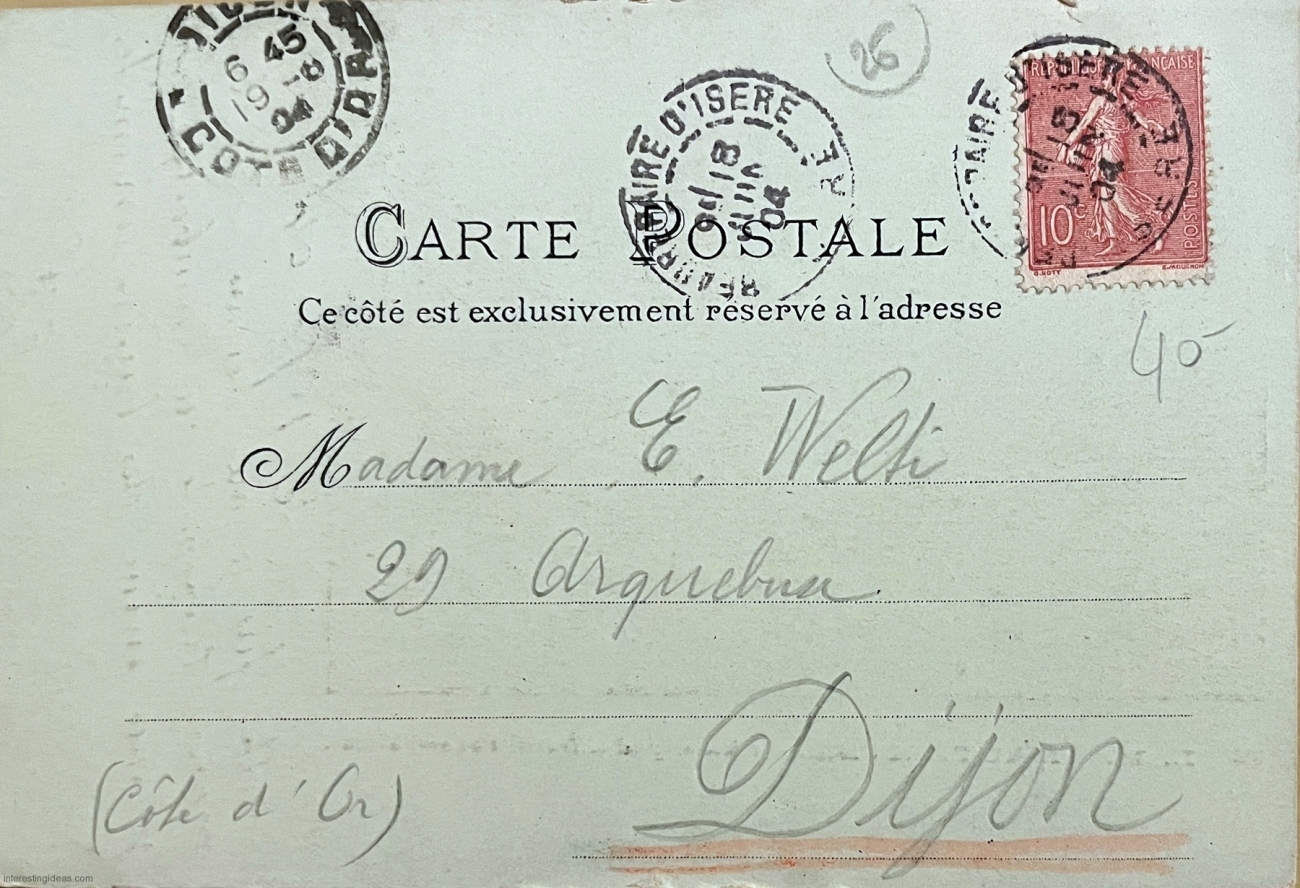 6 45
19 -8
04
COTE D'OR
26
BEAUREPAIRE D'ISERE
18
JUIN
04
RE
REPUBLIQUE FRANÇAISE
D'ISERE
18
JUIN
04
10c
POSTES
O. ROTY
E. MOUCHON
CARTE POSTALE
Ce côté est exclusivement réservé à l'adresse
40
Madame E. Welti
29 Arquebuse
Dijon
(Côte d'Or)
interestingideas.com